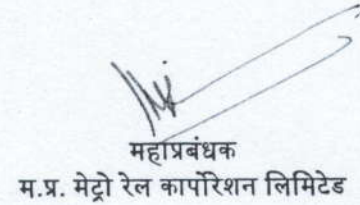 महाप्रबंधक
म.प्र. मेट्रो रेल कार्पोरेशन लिमिटेड